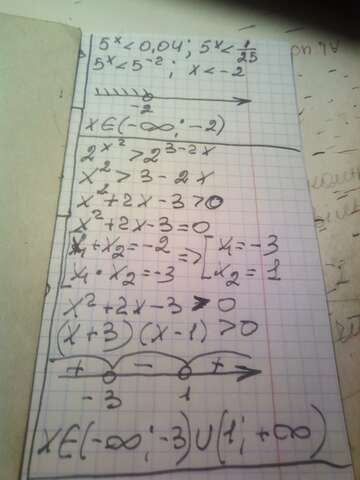 5^x < 0,04; 5^x < 1/25
5^x < 5^-2; x < -2
-2
x∈(-∞; -2)
2^x² > 2^3-2x
x² > 3-2x
x²+2x-3>0
x²+2x-3=0
x₁+x₂=-2 => x₁=-3
x₁·x₂=-3 x₂=1
x²+2x-3 > 0
(x+3)(x-1)>0
+ - +
-3 1
x∈(-∞; -3)∪(1; +∞)